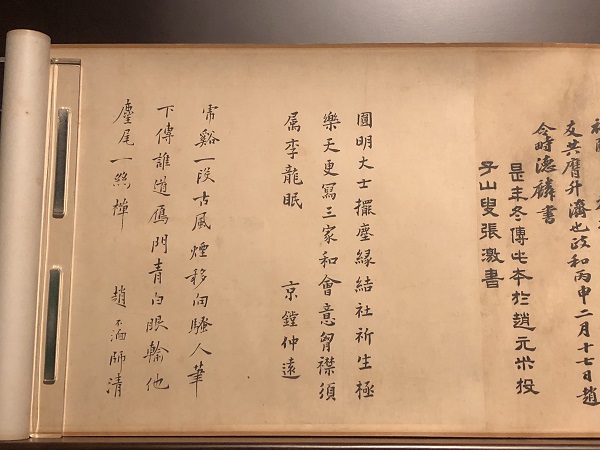 友共膺升濟也政和丙申二月十七日趙
令時德麟書
冬傳本於趙
子山叟張激書
圓明大士擺塵緣結社祈生極
樂天更寫三家和會意胷襟須
属李龍眠
京鏜仲遠
虎谿一段古風煙移向騷人筆
下傳誰道鴈門青白眼輸他
麈尾一絲禪
趙不師清